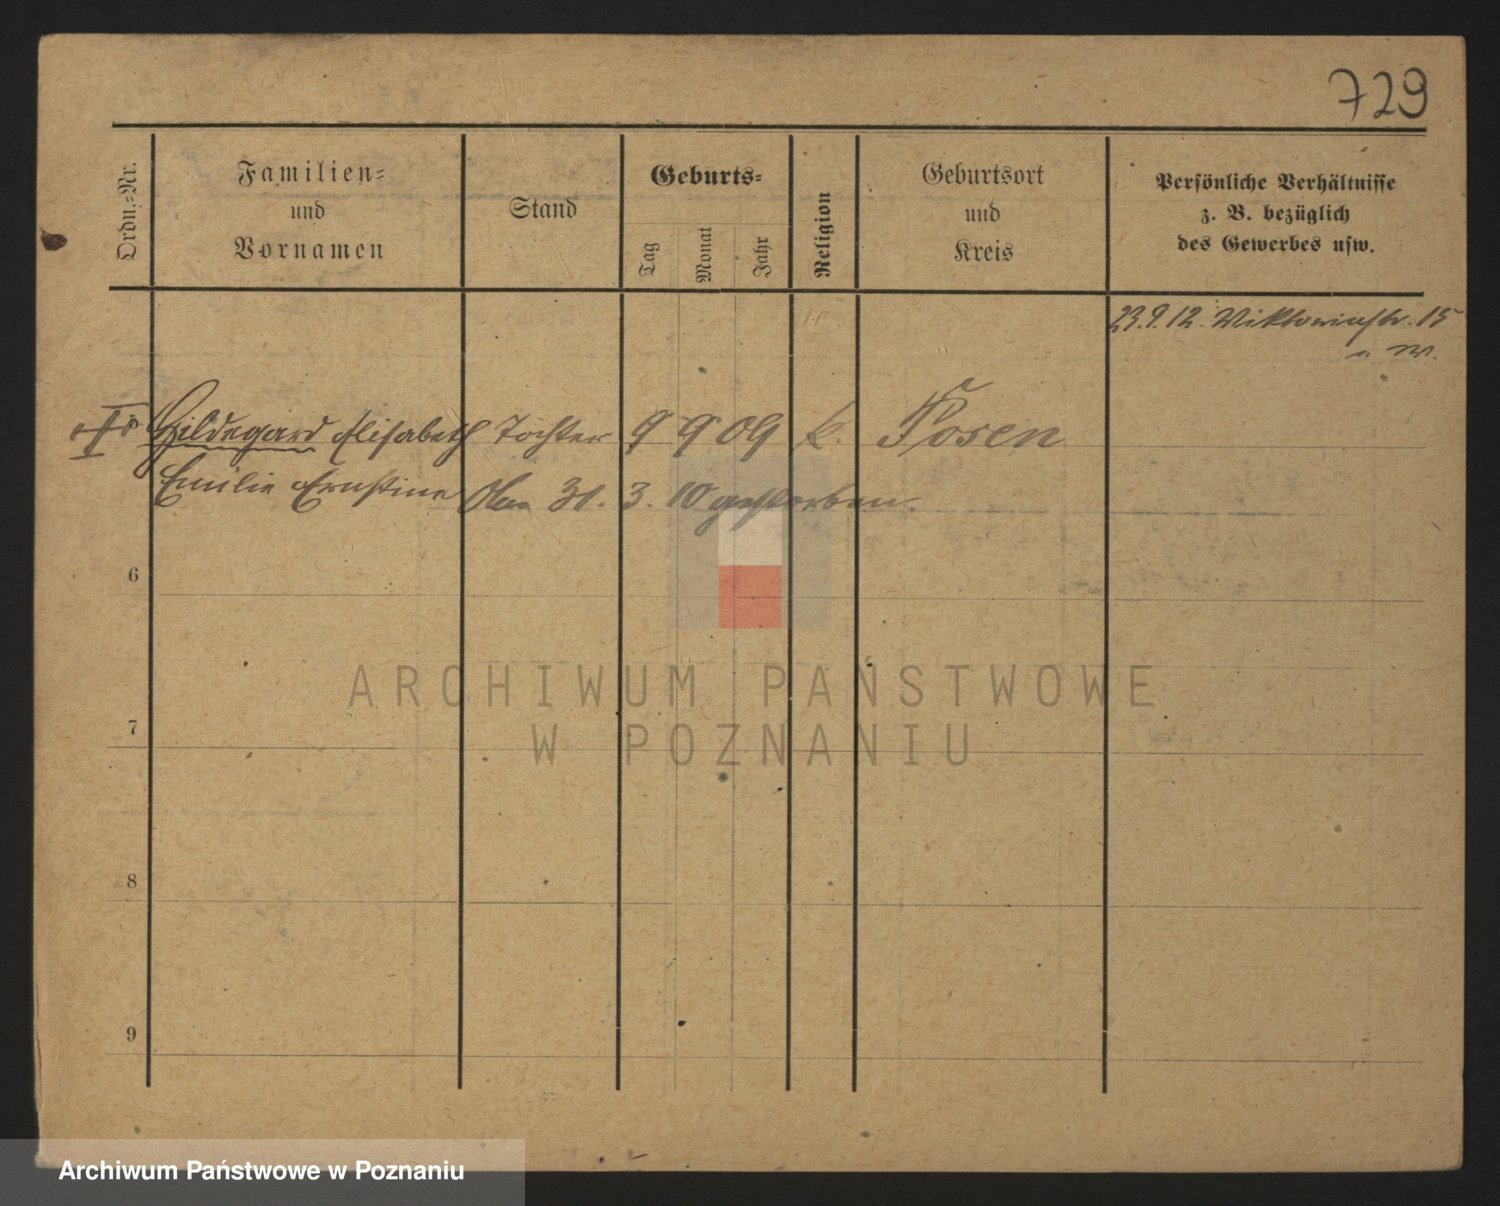 729
Ordn.-Nr.
Familien-
und
Vornamen
Stand
Geburts-
Tag
Monat
Jahr
Religion
Geburtsort
und
Kreis
Persönliche Verhältnisse
z. B. bezüglich
des Gewerbes usw.
23.9.12. Viktoriastr. 15
5 Hildegard Elisabeth Tochter 9 9 09 k. Posen
Emilie Ernstine Am 31. 3. 10 gestorben.
6
7
8
9
ARCHIWUM PAŃSTWOWE
W POZNANIU
Archiwum Państwowe w Poznaniu